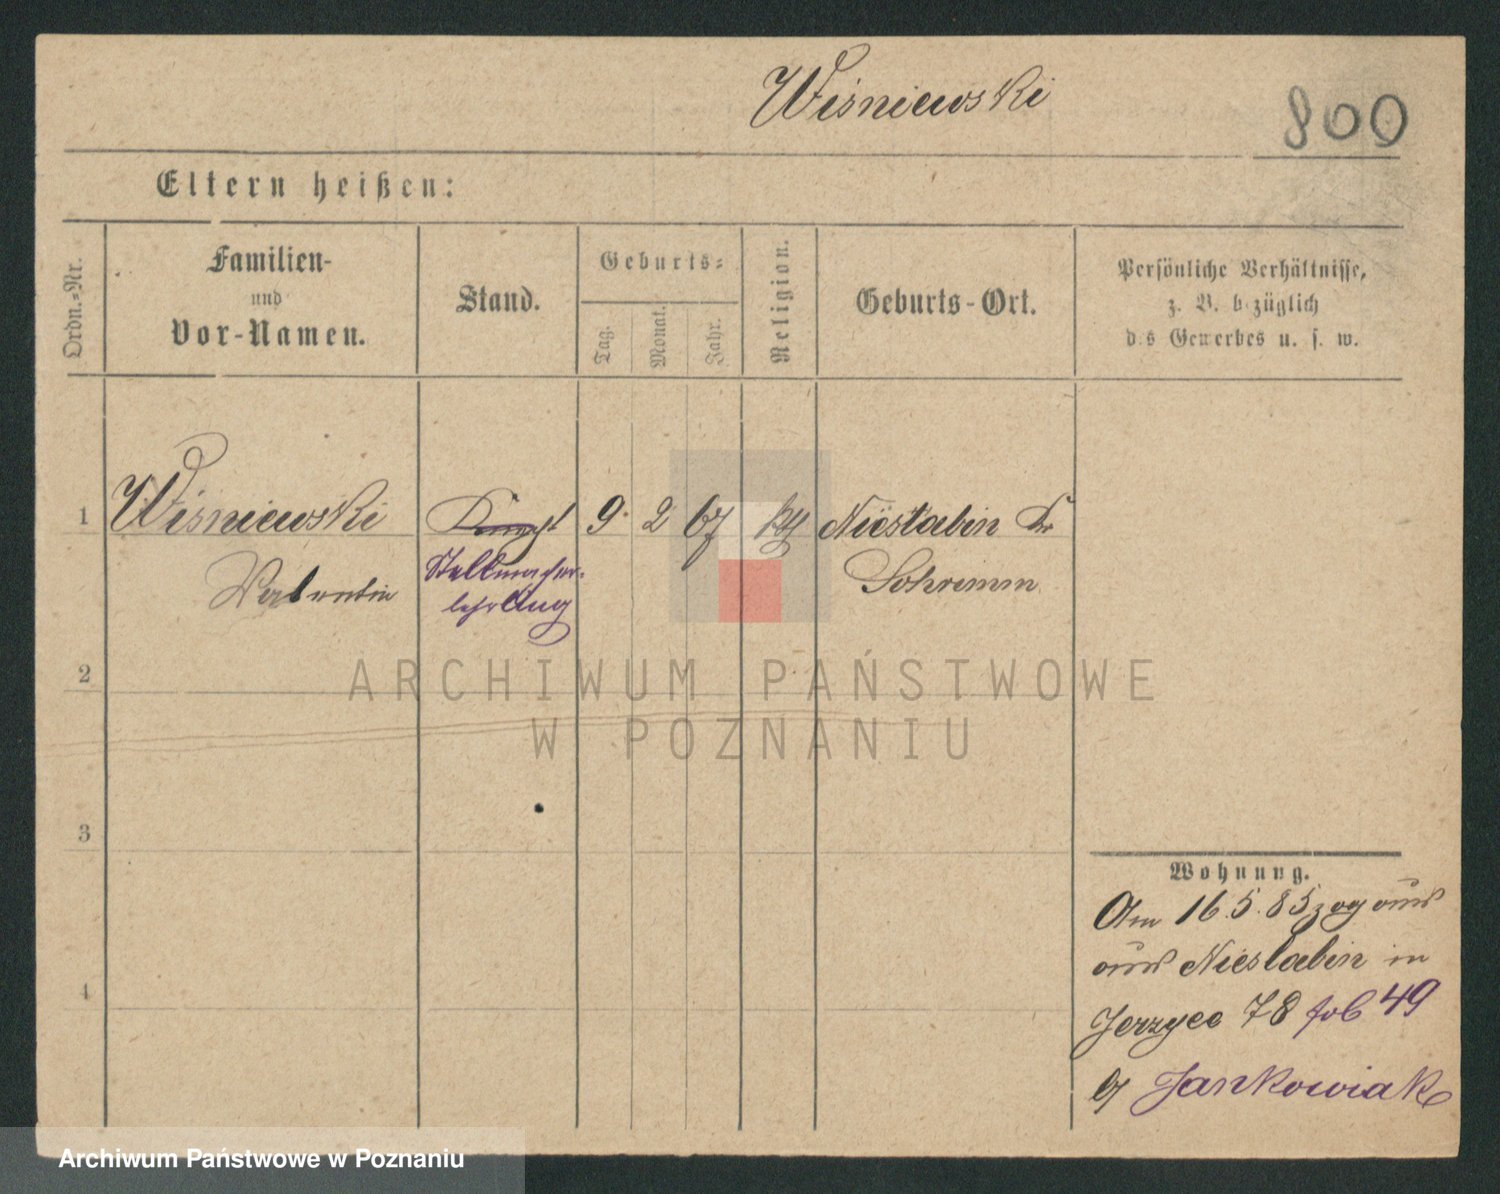 Wiśniewski
800
Eltern heißen:
Ordn.-Nr.
Familien-
und
Vor-Namen.
Stand.
Geburts-
Tag.
Monat.
Jahr.
Religion.
Geburts-Ort.
Persönliche Verhältnisse,
z. B. bezüglich
des Gewerbes u. s. w.
1
Wiśniewski
Knecht
9. 2 67
Niestabin Kr
Valentin
Stellmacher-
lehrling
Schrimm
ARCHIWUM PAŃSTWOWE
W POZNANIU
2
3
4
Wohnung.
Am 16.5.85 zog
aus Niestabin in
Jerzyce 78 49
b/ Jankowiak
Archiwum Państwowe w Poznaniu